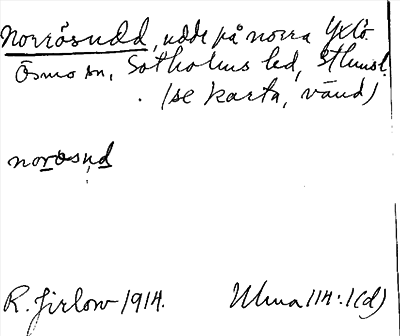 Norrösudd, udde på norra Yxlö.
Ösmo sn, Sotholms hd, Sthmsl.
. (se karta, vänd)
norosụd
R. Jirlow 1914. Ulma 114:1(d)